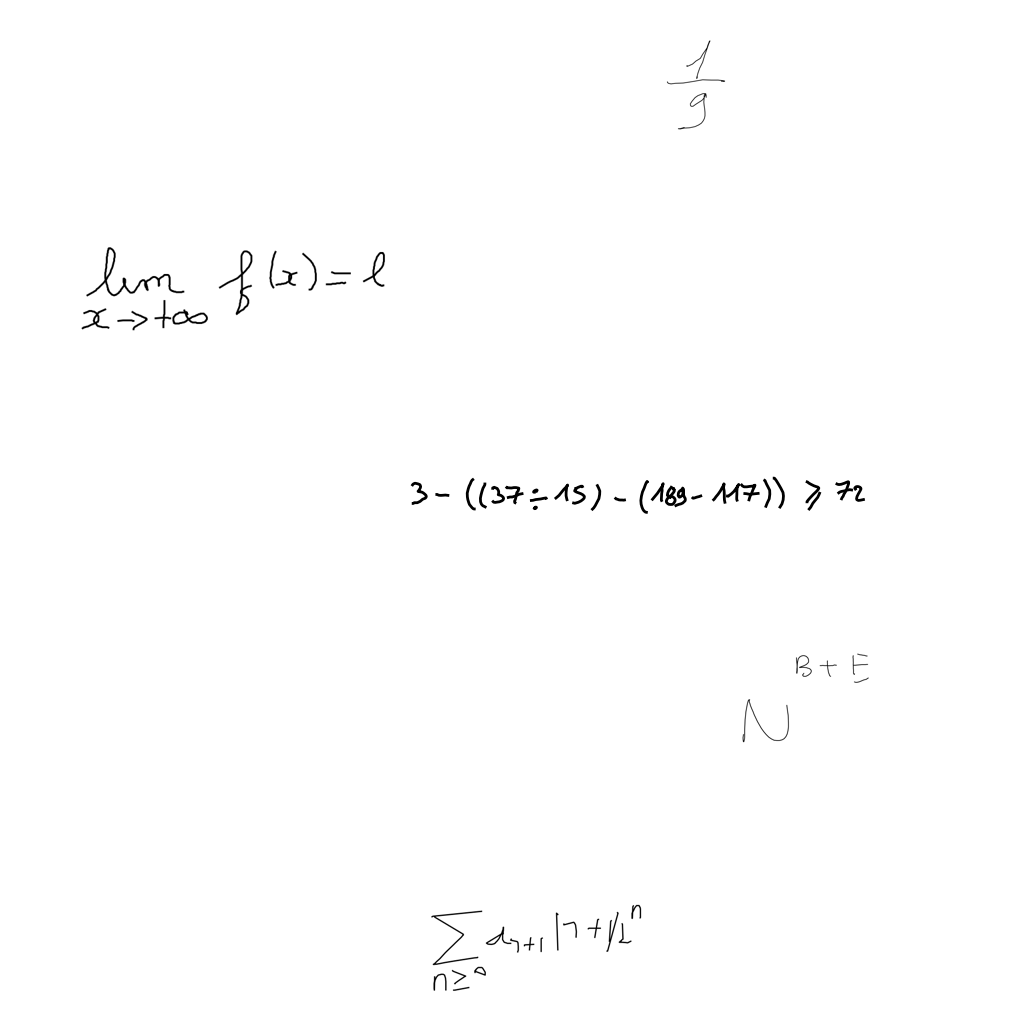 \frac{1}{9}
\lim_{x \to +\infty} f(x) = l
3 - ((37 \div 15) - (189 - 117)) \geqslant 72
N^{B+E}
\sum_{n \geq 0} a_{n+1} |n+1|z^n